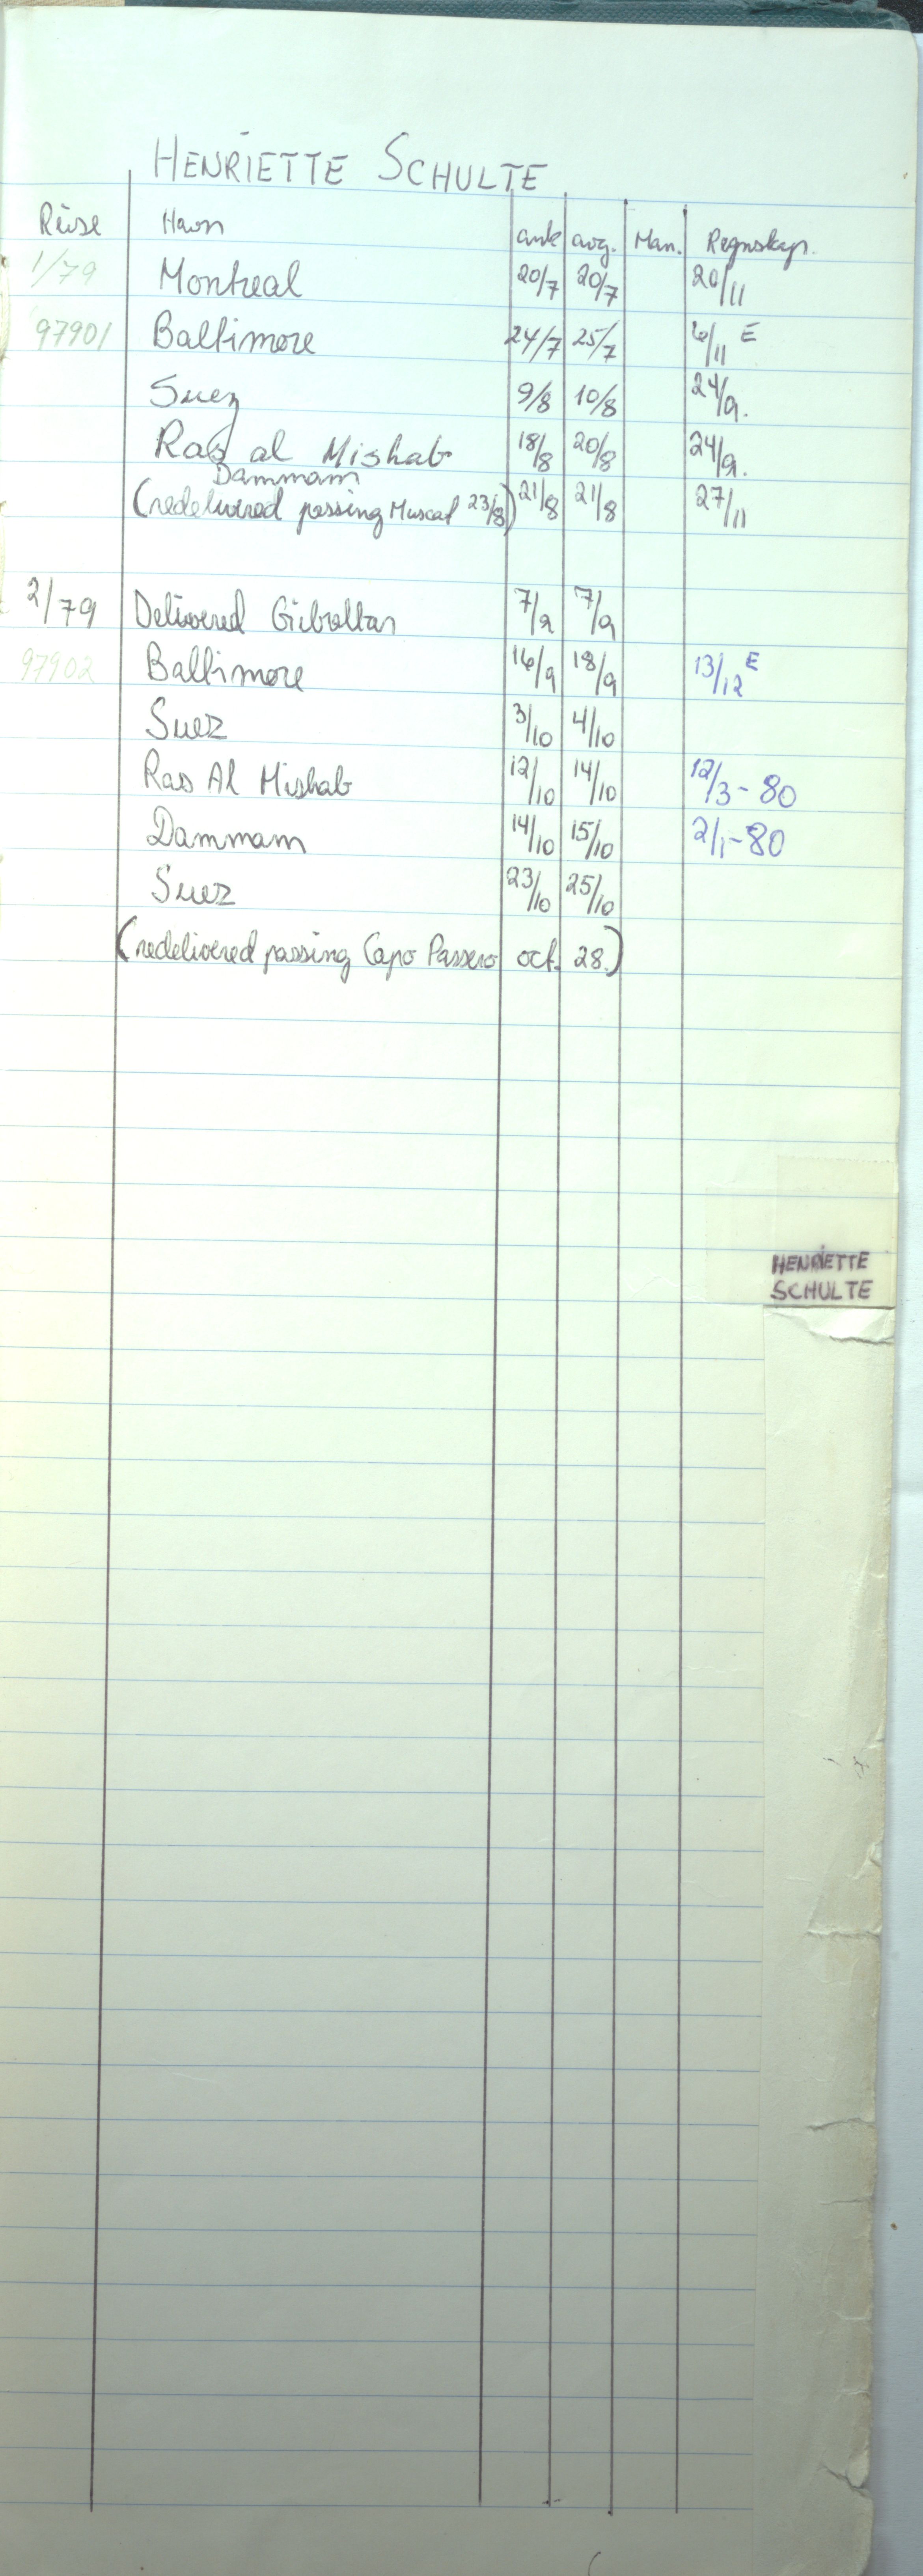 HENRIETTE SCHULTE
Reise Havn ank avg. Man. Regnskap.
1/79 Montreal 20/7 20/7 20/11
97901 Baltimore 24/7 25/7 6/11 E
Suez 9/8 10/8 24/9.
Ras al Mishab 18/8 20/8 24/9.
Dammam
(redelivered passing Muscat 23/8) 21/8 21/8 27/11
2/79 Delivered Gibraltar 7/9 7/9
97902 Baltimore 16/9 18/9 13/12 E
Suez 3/10 4/10
Ras Al Mishab 12/10 14/10 12/3-80
Dammam 14/10 15/10 2/1-80
Suez 23/10 25/10
(redelivered passing Capo Passero oct. 28.)
HENRIETTE
SCHULTE